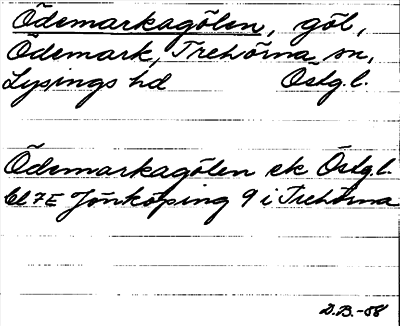 Ödemarkagölen, göl,
Ödemark, Trehörna sn,
Lysings hd Östg.l.
Ödemarkagölen ek Östg.l.
bl 7E Jönköping 9 i Trehörna
D.B.-58